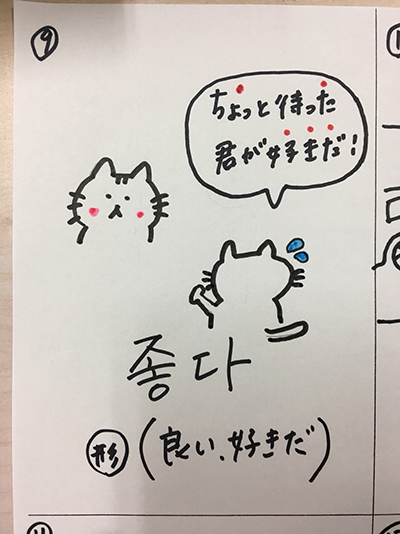 ⑨
ちょっと待った
君が好きだ!
좋다
形 (良い、好きだ)